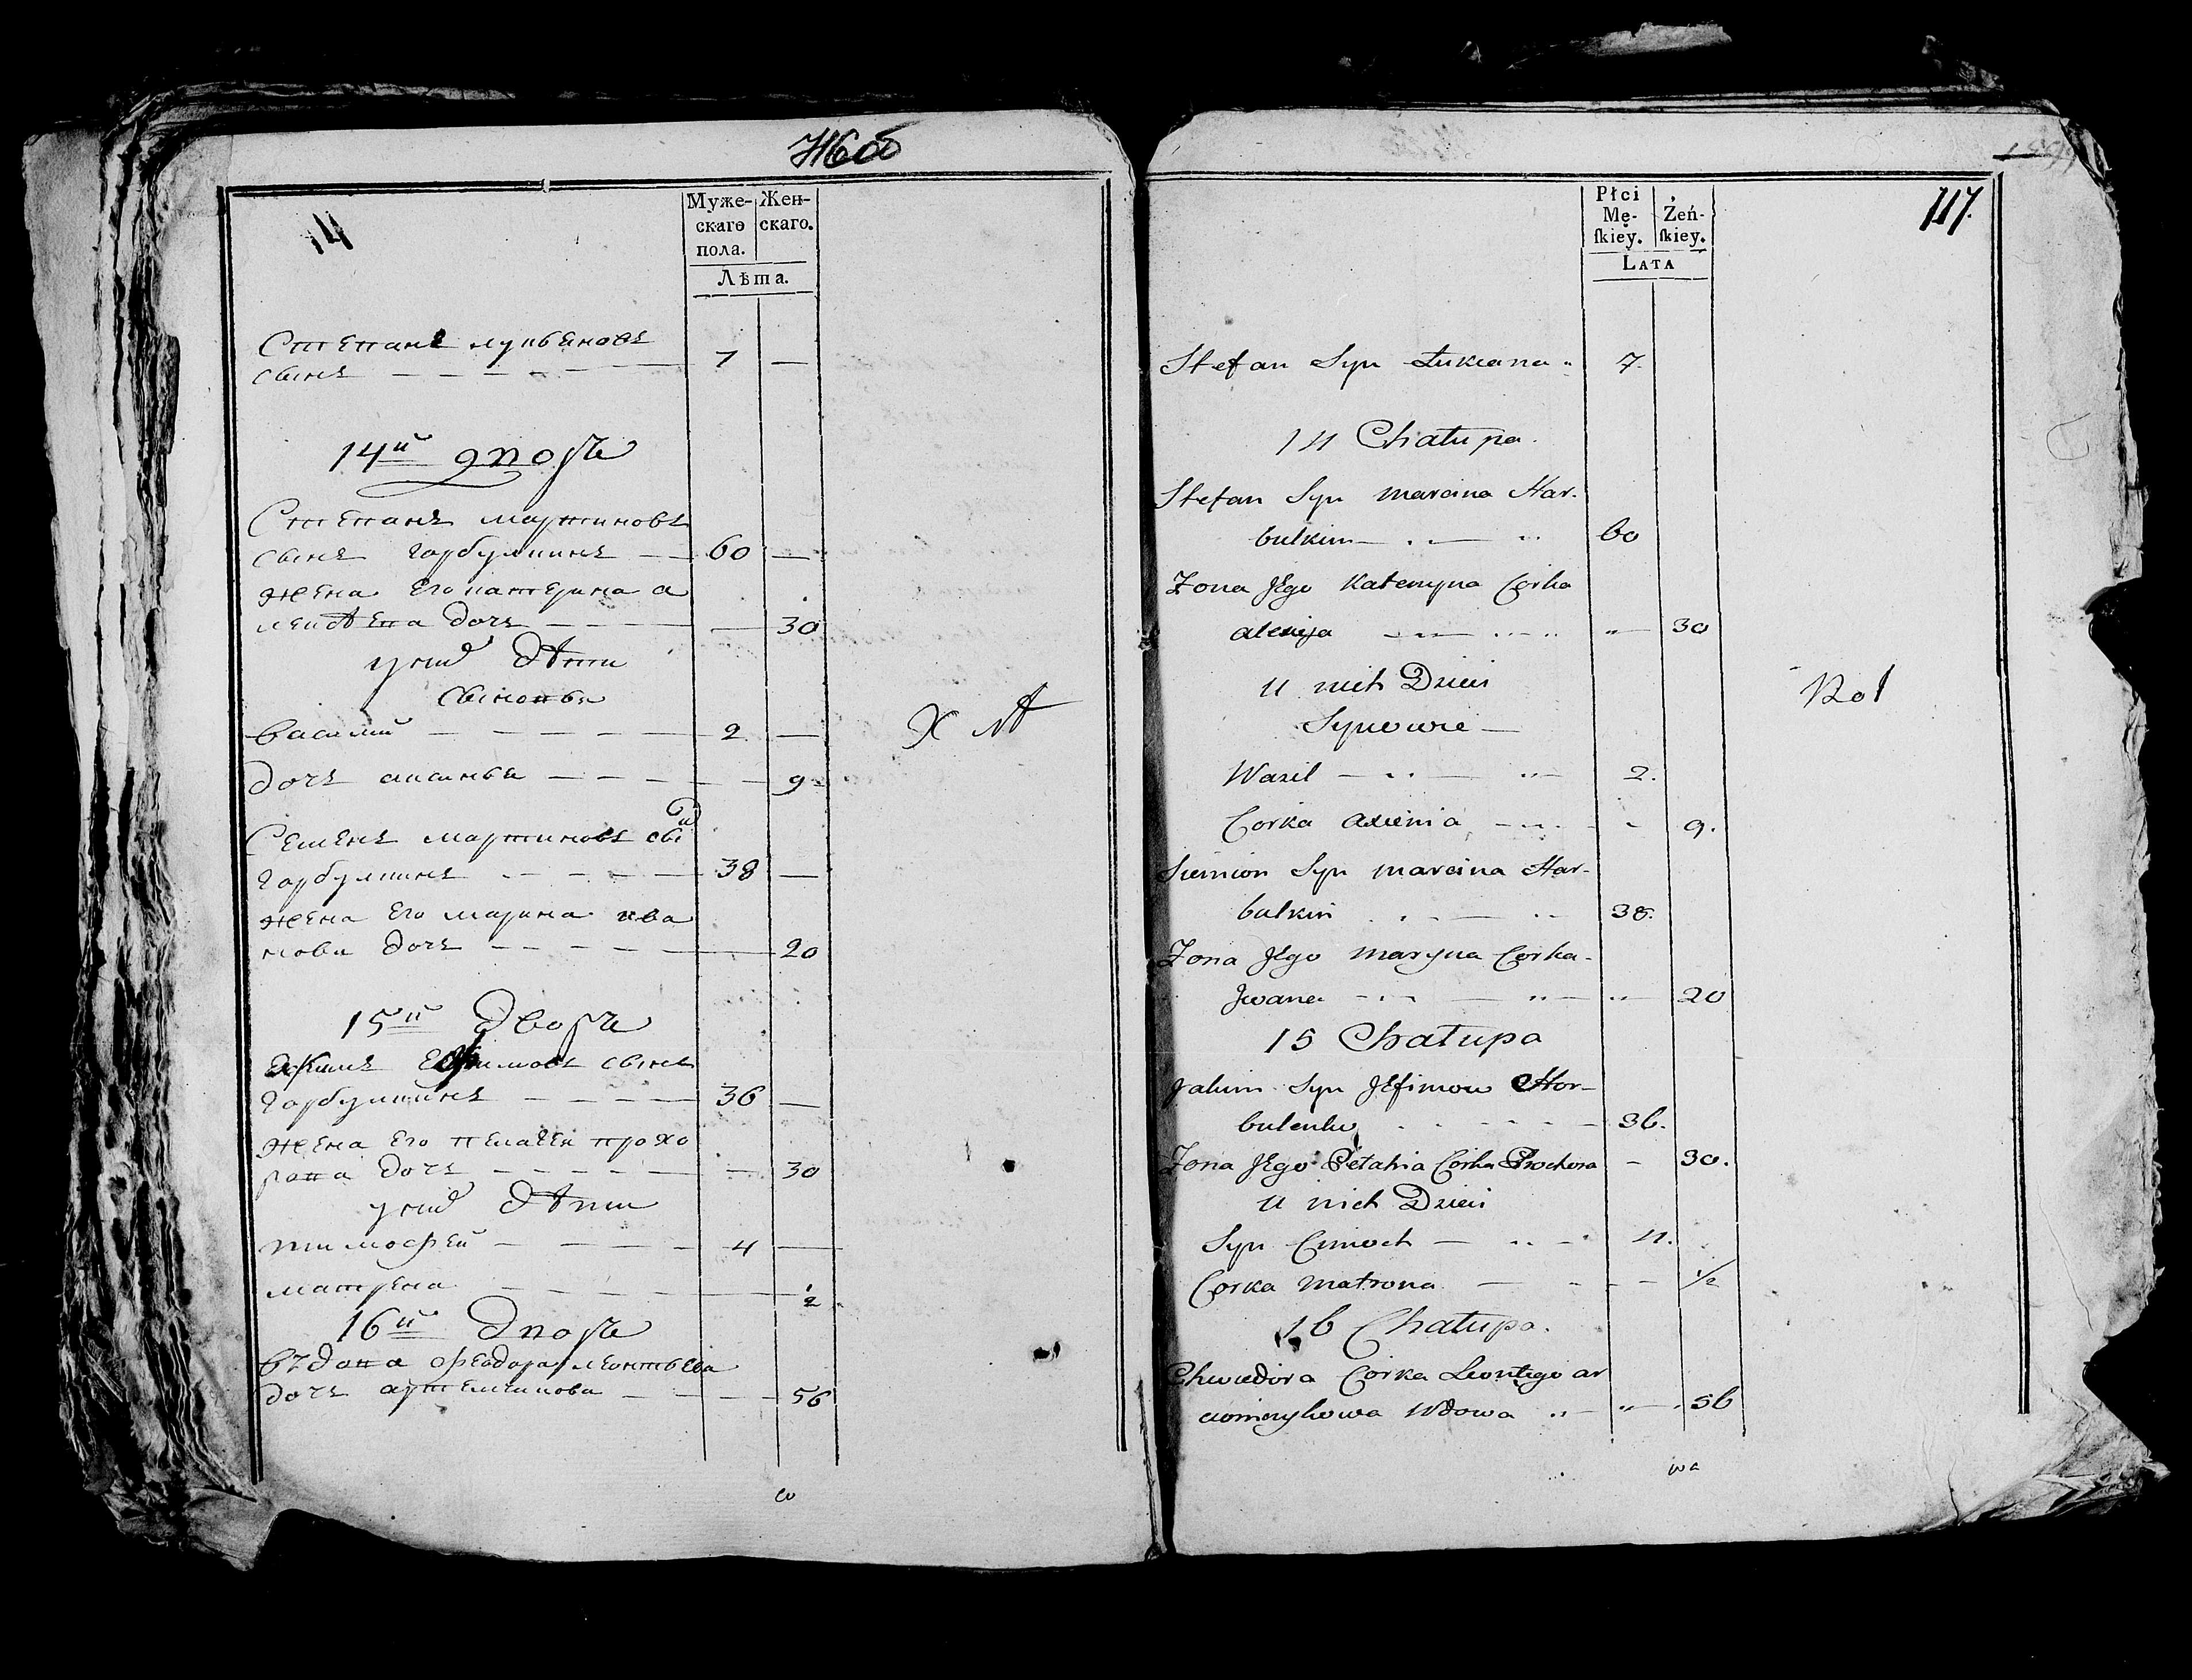 14
Муже-
скаго
пола.
Жен-
скаго.
Лѣта.
Степанъ лукьяновъ
сынъ 7 —
14й дворъ
Степанъ мартиновъ
сынъ гарбулкинъ — 60 —
жена его катерина а
лексѣева дочь — 30
у них дѣти
сыновья
василий — 2 —
дочь аксинья — 9
Семенъ мартиновъ сын
гарбулкинъ — 38 —
жена его марина ива
нова дочь — 20
15й дворъ
Екимъ Ефимовъ сынъ
гарбулкинъ — 36 —
жена его пелагея прохо
рова дочь — 30
у них дѣти
тимофей — 4 —
матрена — 1/2
16й дворъ
вѣдова феодора леонтьева
дочь — 56
Х лѣ
117.
Płci
Mę-
ſkiey.
Żeń-
ſkiey.
LATA
Stefan Syn Łukiana 7.
14 Chałupa.
Stefan Syn Marcina Har-
bulkin 60
Żona Jego Kateryna Corka
Alexieja 30
U nich Dzieci
Synowie —
Wasil — 2.
Corka Axienia 9.
Siemion Syn Marcina Har-
bulkin 38.
Żona Jego Maryna Corka
Jwana 20
15 Chałupa
Jakim Syn Jefimow Hor-
bulenko 36.
Żona Jego Pelahia Corka Prochora — 30.
U nich Dzieci
Syn Cimoch — 4.
Corka Matrona — 1/2
16 Chałupa.
Chwiedora Corka Leontego ar
Wdowa 56
wa